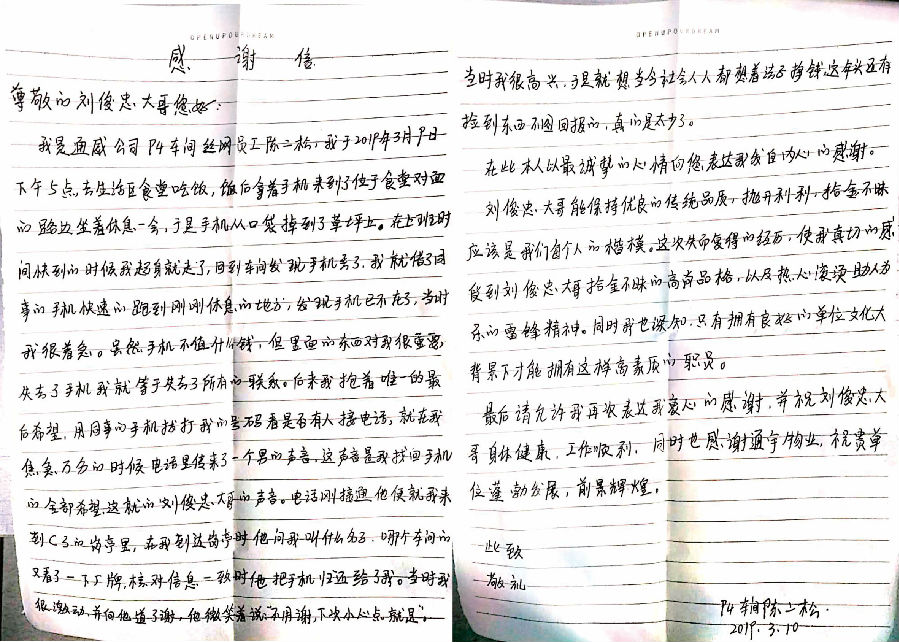 OPENUPYOURDREAM
感 谢 信
尊敬的刘俊忠大哥您好:
我是通威公司P4车间丝网员工陈二松,我于2019年3月9日
下午5点去生活区食堂吃饭,饭后拿着手机来到了位于食堂对面
的路边坐着休息一会,于是手机从口袋掉到了草坪上。在上班时
间快到的时候我起身就走了,回到车间发现手机丢了,我就借了同
事的手机快速的跑到刚刚休息的地方,发现手机已不在了,当时
我很着急。虽然手机不值什么钱,但里面的东西对我很重要,
失去了手机我就等于失去了所有的联系。后来我抱着唯一的最
后希望,用同事的手机拨打我的号码看是否有人接电话,就在我
焦急万分的时候电话里传来了一个男的声音,这声音是我找回手机
的全部希望,这就的刘俊忠大哥的声音。电话刚接通他便就我来
到C3的岗亭里,在我到达岗亭时他问我叫什么名子,哪个车间的
又看了一下厂牌,核对信息一致时他把手机归还给了我。当时我
很激动,并向他道了谢,他微笑着说"不用谢,下次小心点就是"。
OPENUPYOURDREAM
当时我很高兴,于是就想当今社会人人都想着法子挣钱,这年头还有
捡到东西不图回报的,真的是太少了。
在此本人以最诚挚的心情向您表达我发自内心的感谢。
刘俊忠大哥能保持优良的传统品质,抛开利利,拾金不昧
应该是我们每个人的楷模。这次失而复得的经历,使我真切的感
受到刘俊忠大哥拾金不昧的高尚品格,以及热心滚烫助人为
乐的雷锋精神。同时我也深知,只有拥有良好的单位文化大
背景下才能拥有这样高素质的职员。
最后请允许我再次表达我衷心的感谢,并祝刘俊忠大
哥身体健康,工作顺利。同时也感谢通宇物业,祝贵单
位蓬勃发展,前景辉煌。
此致
敬礼
P4车间陈二松.
2019.3.10